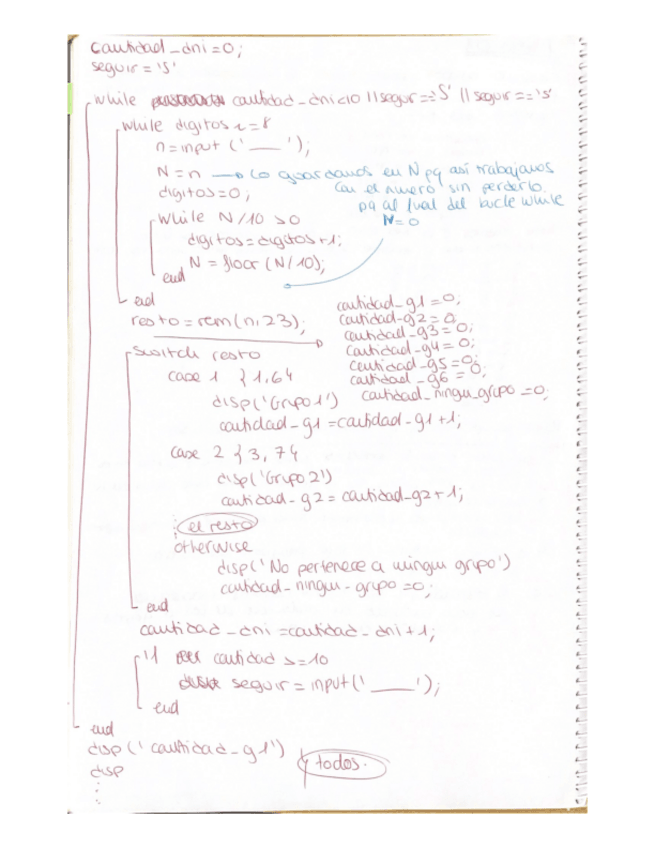 cantidad_dni=0;
seguir='s'
while cantidad_dni<10 ||seguir=='S' || seguir=='s'
while digitos ~=8
n=input ('___');
N=n → Lo guardamos en N pq así trabajamos
con el numero sin perderlo.
pq al final del bucle while
N=0
digitos=0;
while N/10 >0
digitos=digitos+1;
N=floor(N/10);
end
end
resto=rem(n,23);
cantidad_g1=0;
cantidad_g2=0;
cantidad_g3=0;
cantidad_g4=0;
cantidad_g5=0;
cantidad_g6=0;
cantidad_ningun_grupo=0;
switch resto
case 1 {1,6}
disp('Grupo1')
cantidad_g1=cantidad_g1+1;
case 2 {3,7}
disp('Grupo2')
cantidad_g2=cantidad_g2+1;
el resto
otherwise
disp('No pertenece a ningun grupo')
cantidad_ningun_grupo=0;
end
cantidad_dni=cantidad_dni+1;
if cantidad >=10
seguir=input('___');
end
end
disp('cantidad_g1')
disp
y todos.